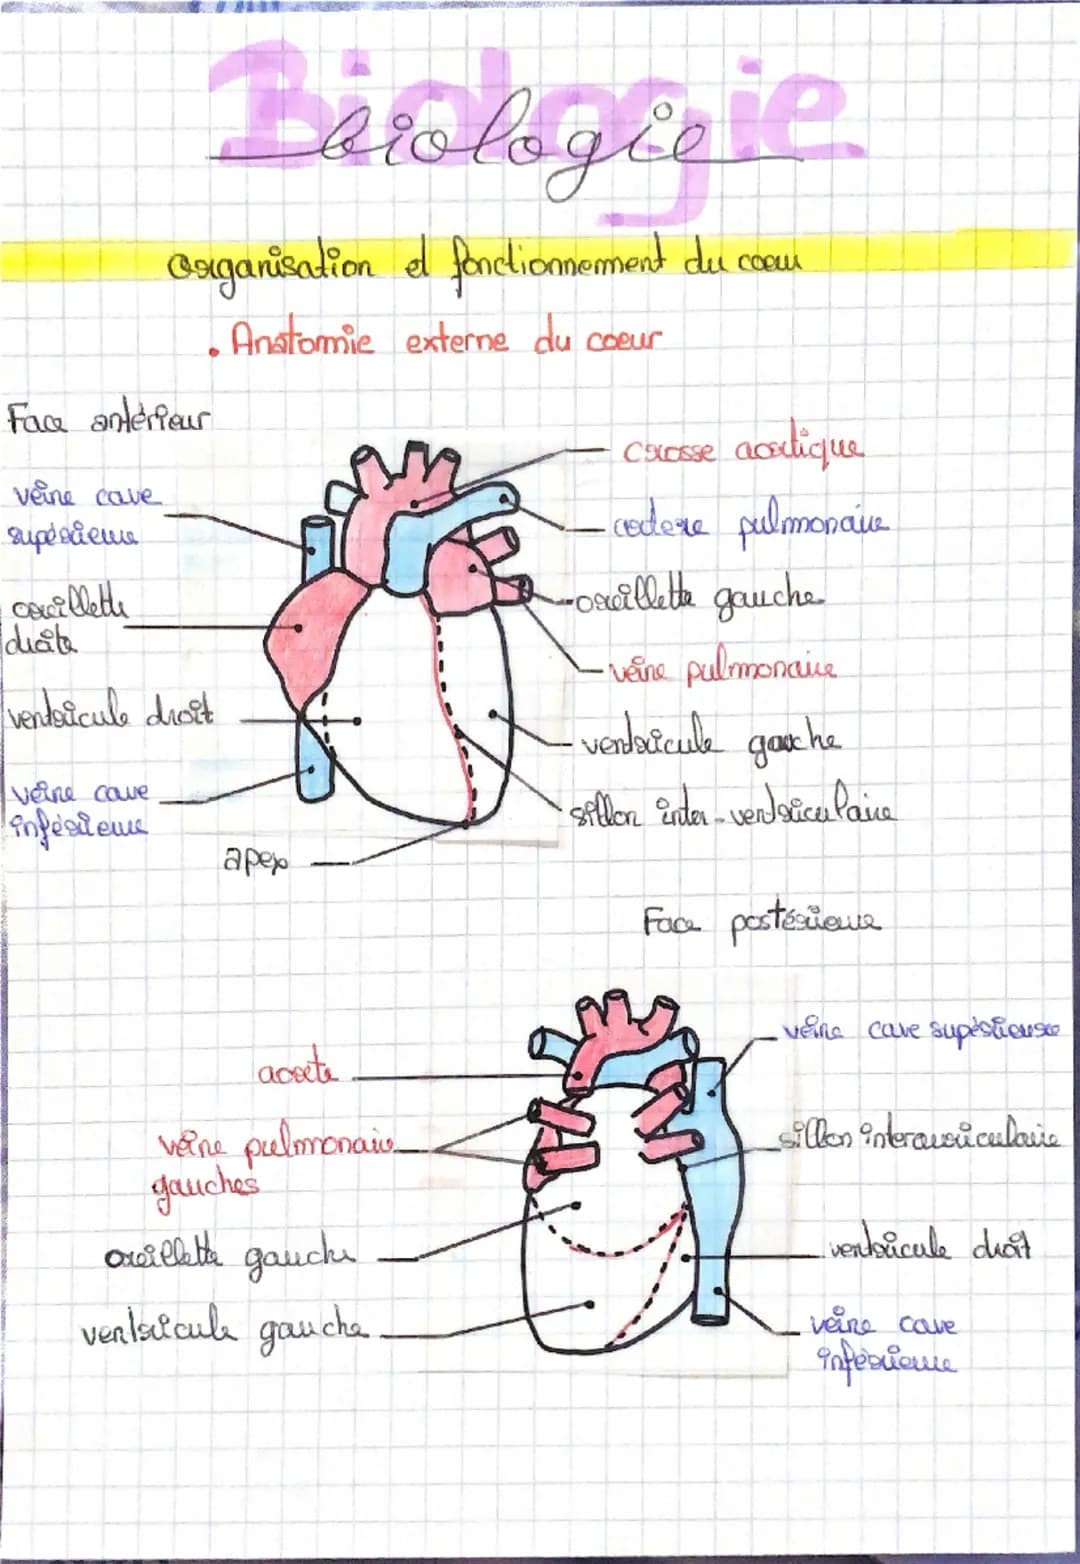 Biologie
biologie
Organisation et fonctionnement du coeur
. Anatomie externe du coeur
Face antérieur
veine cave
supérieure
oreillette
droite
ventricule droit
veine cave
inférieure
apex
crosse aortique
artere pulmonaire
oreillette gauche
veine pulmonaire
ventricule gauche
sillon inter-ventriculaire
Face postérieure
aorte
veine pulmonaire
gauches
oreillette gauche
ventricule gauche
veine cave supérieure
sillon interauriculaire
ventricule droit
veine cave
inférieure